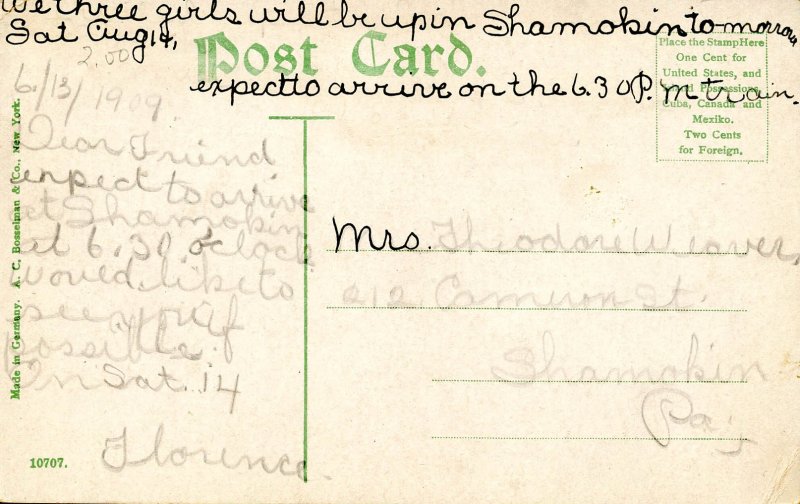 We three girls will be up in Shamokin to-morrow
Sat Aug 14,
2.00
Post Card.
expect to arrive on the 6.30 P. M train.
Place the Stamp Here
One Cent for
United States, and
Island Possessions,
Cuba, Canada and
Mexiko.
Two Cents
for Foreign.
Made in Germany. A. C. Bosselman & Co., New York.
6/13/1909
Dear Friend
expect to arrive
at Shamokin
at 6.30. oclock
would like to
see you if
possible.
On Sat. 14
Florence.
Mrs. Theodore Weaver,
212 Cameron St.
Shamokin
Pa,
10707.